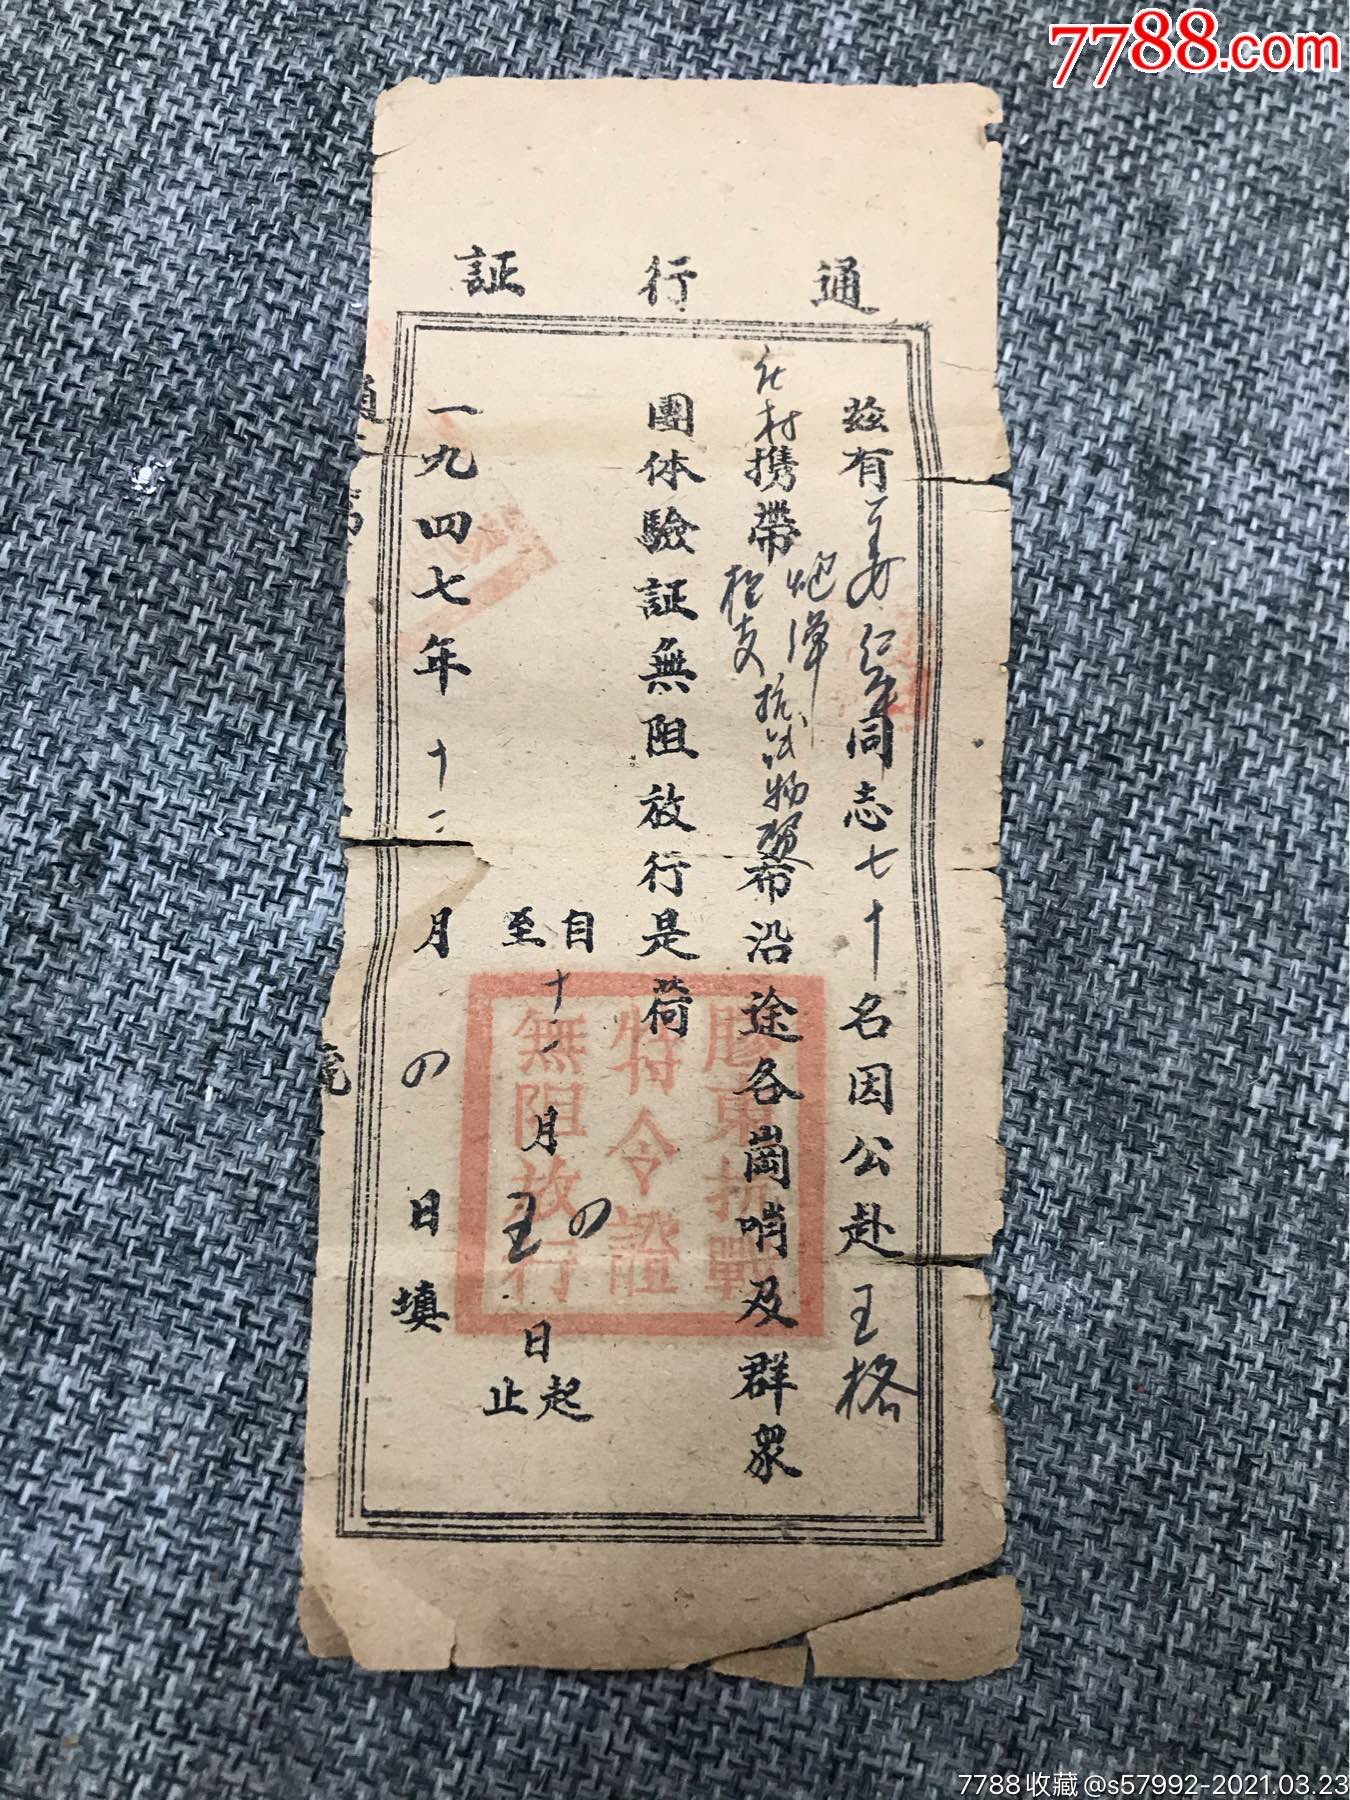 7788.com
通行証
茲有姜同志七十名因公赴王格
在村携帶炮弹槍支抗战物資希沿途各崗哨及群眾
團体驗証無阻放行是荷
自十二月の日起
至 日止
一九四七年十二月の日填
膠東抗戰
特令證
無阻放行
號
7788收藏@s57992-2021.03.23